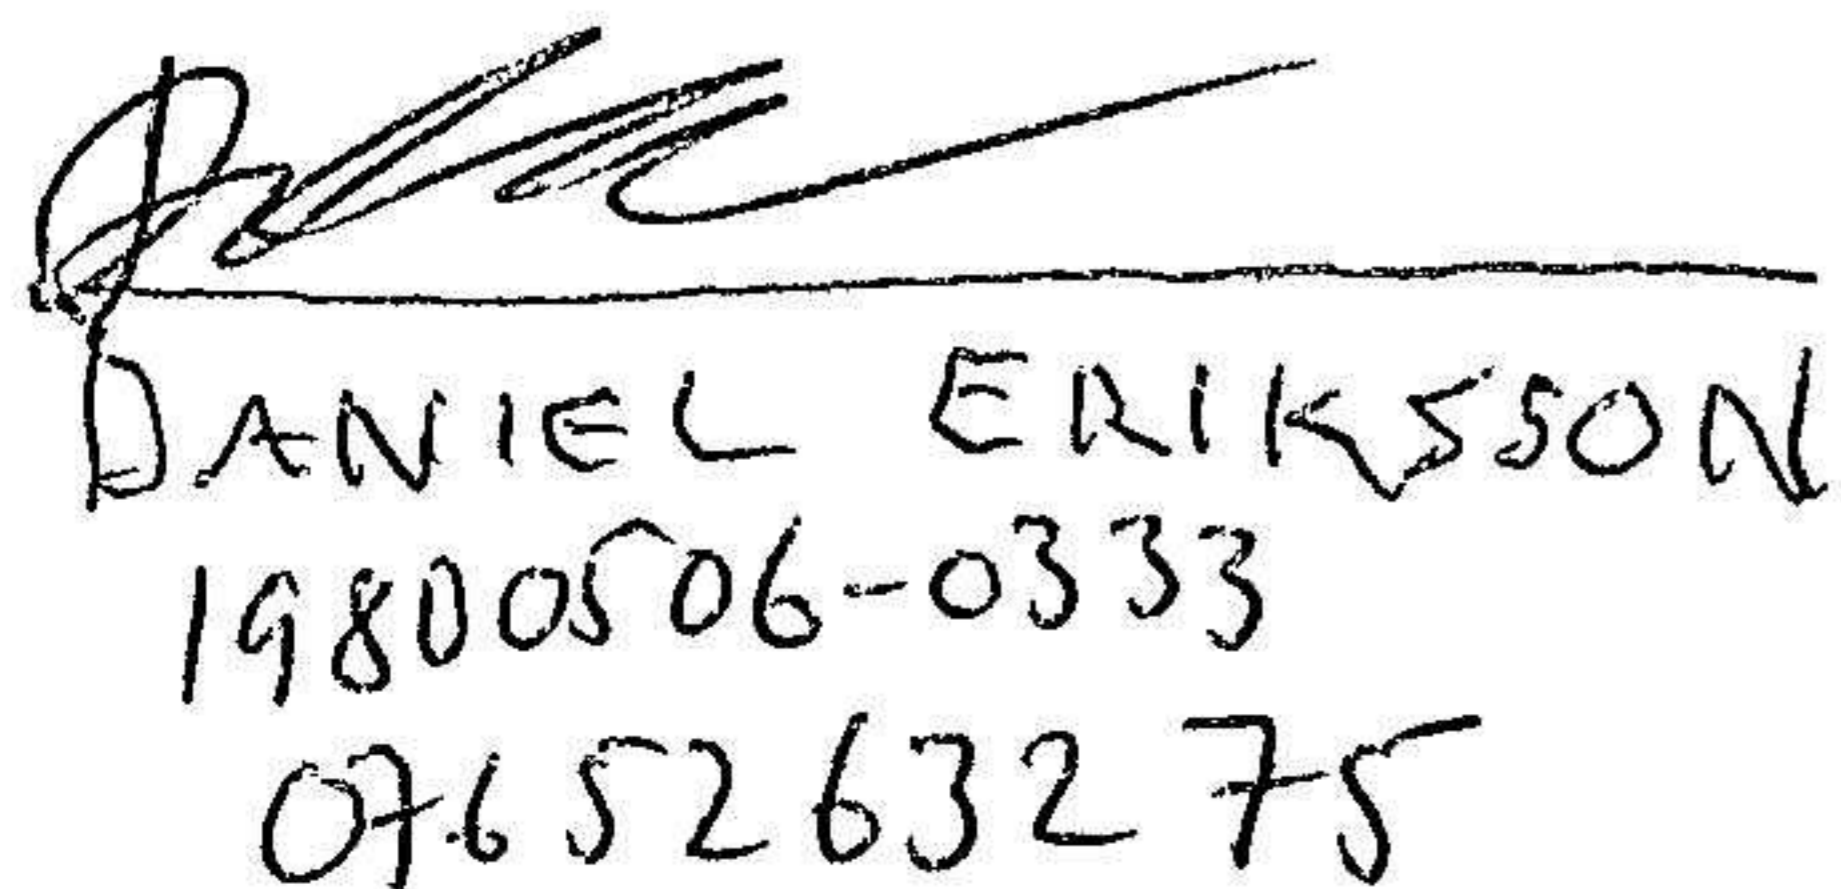 DANIEL ERIKSSON
19800506-0333
0765263275